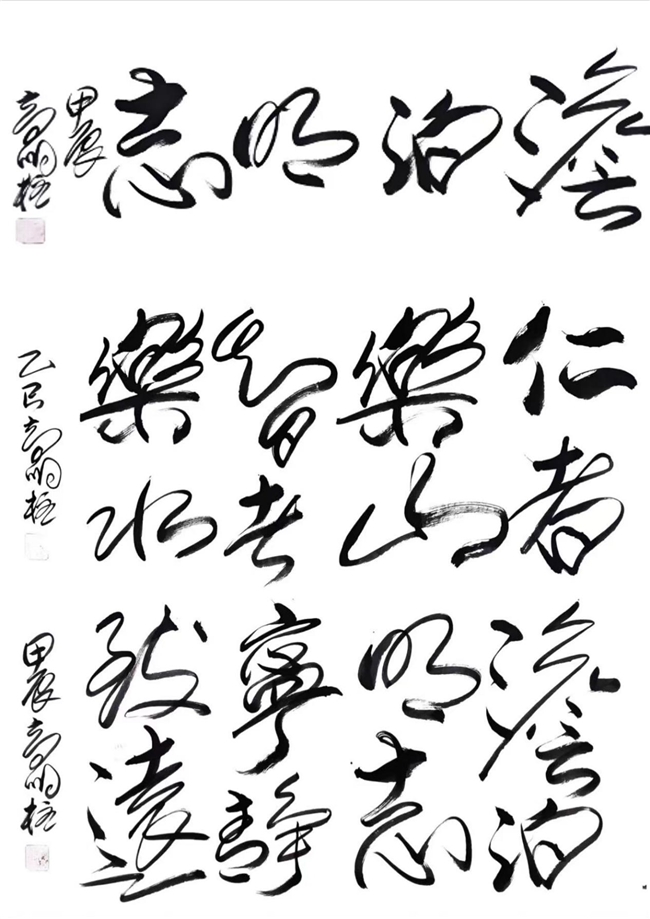 澹泊明志
甲辰
高明柱
仁者
樂山
智者
樂水
乙巳高明柱
澹泊
明志
寧靜
致遠
甲辰高明柱